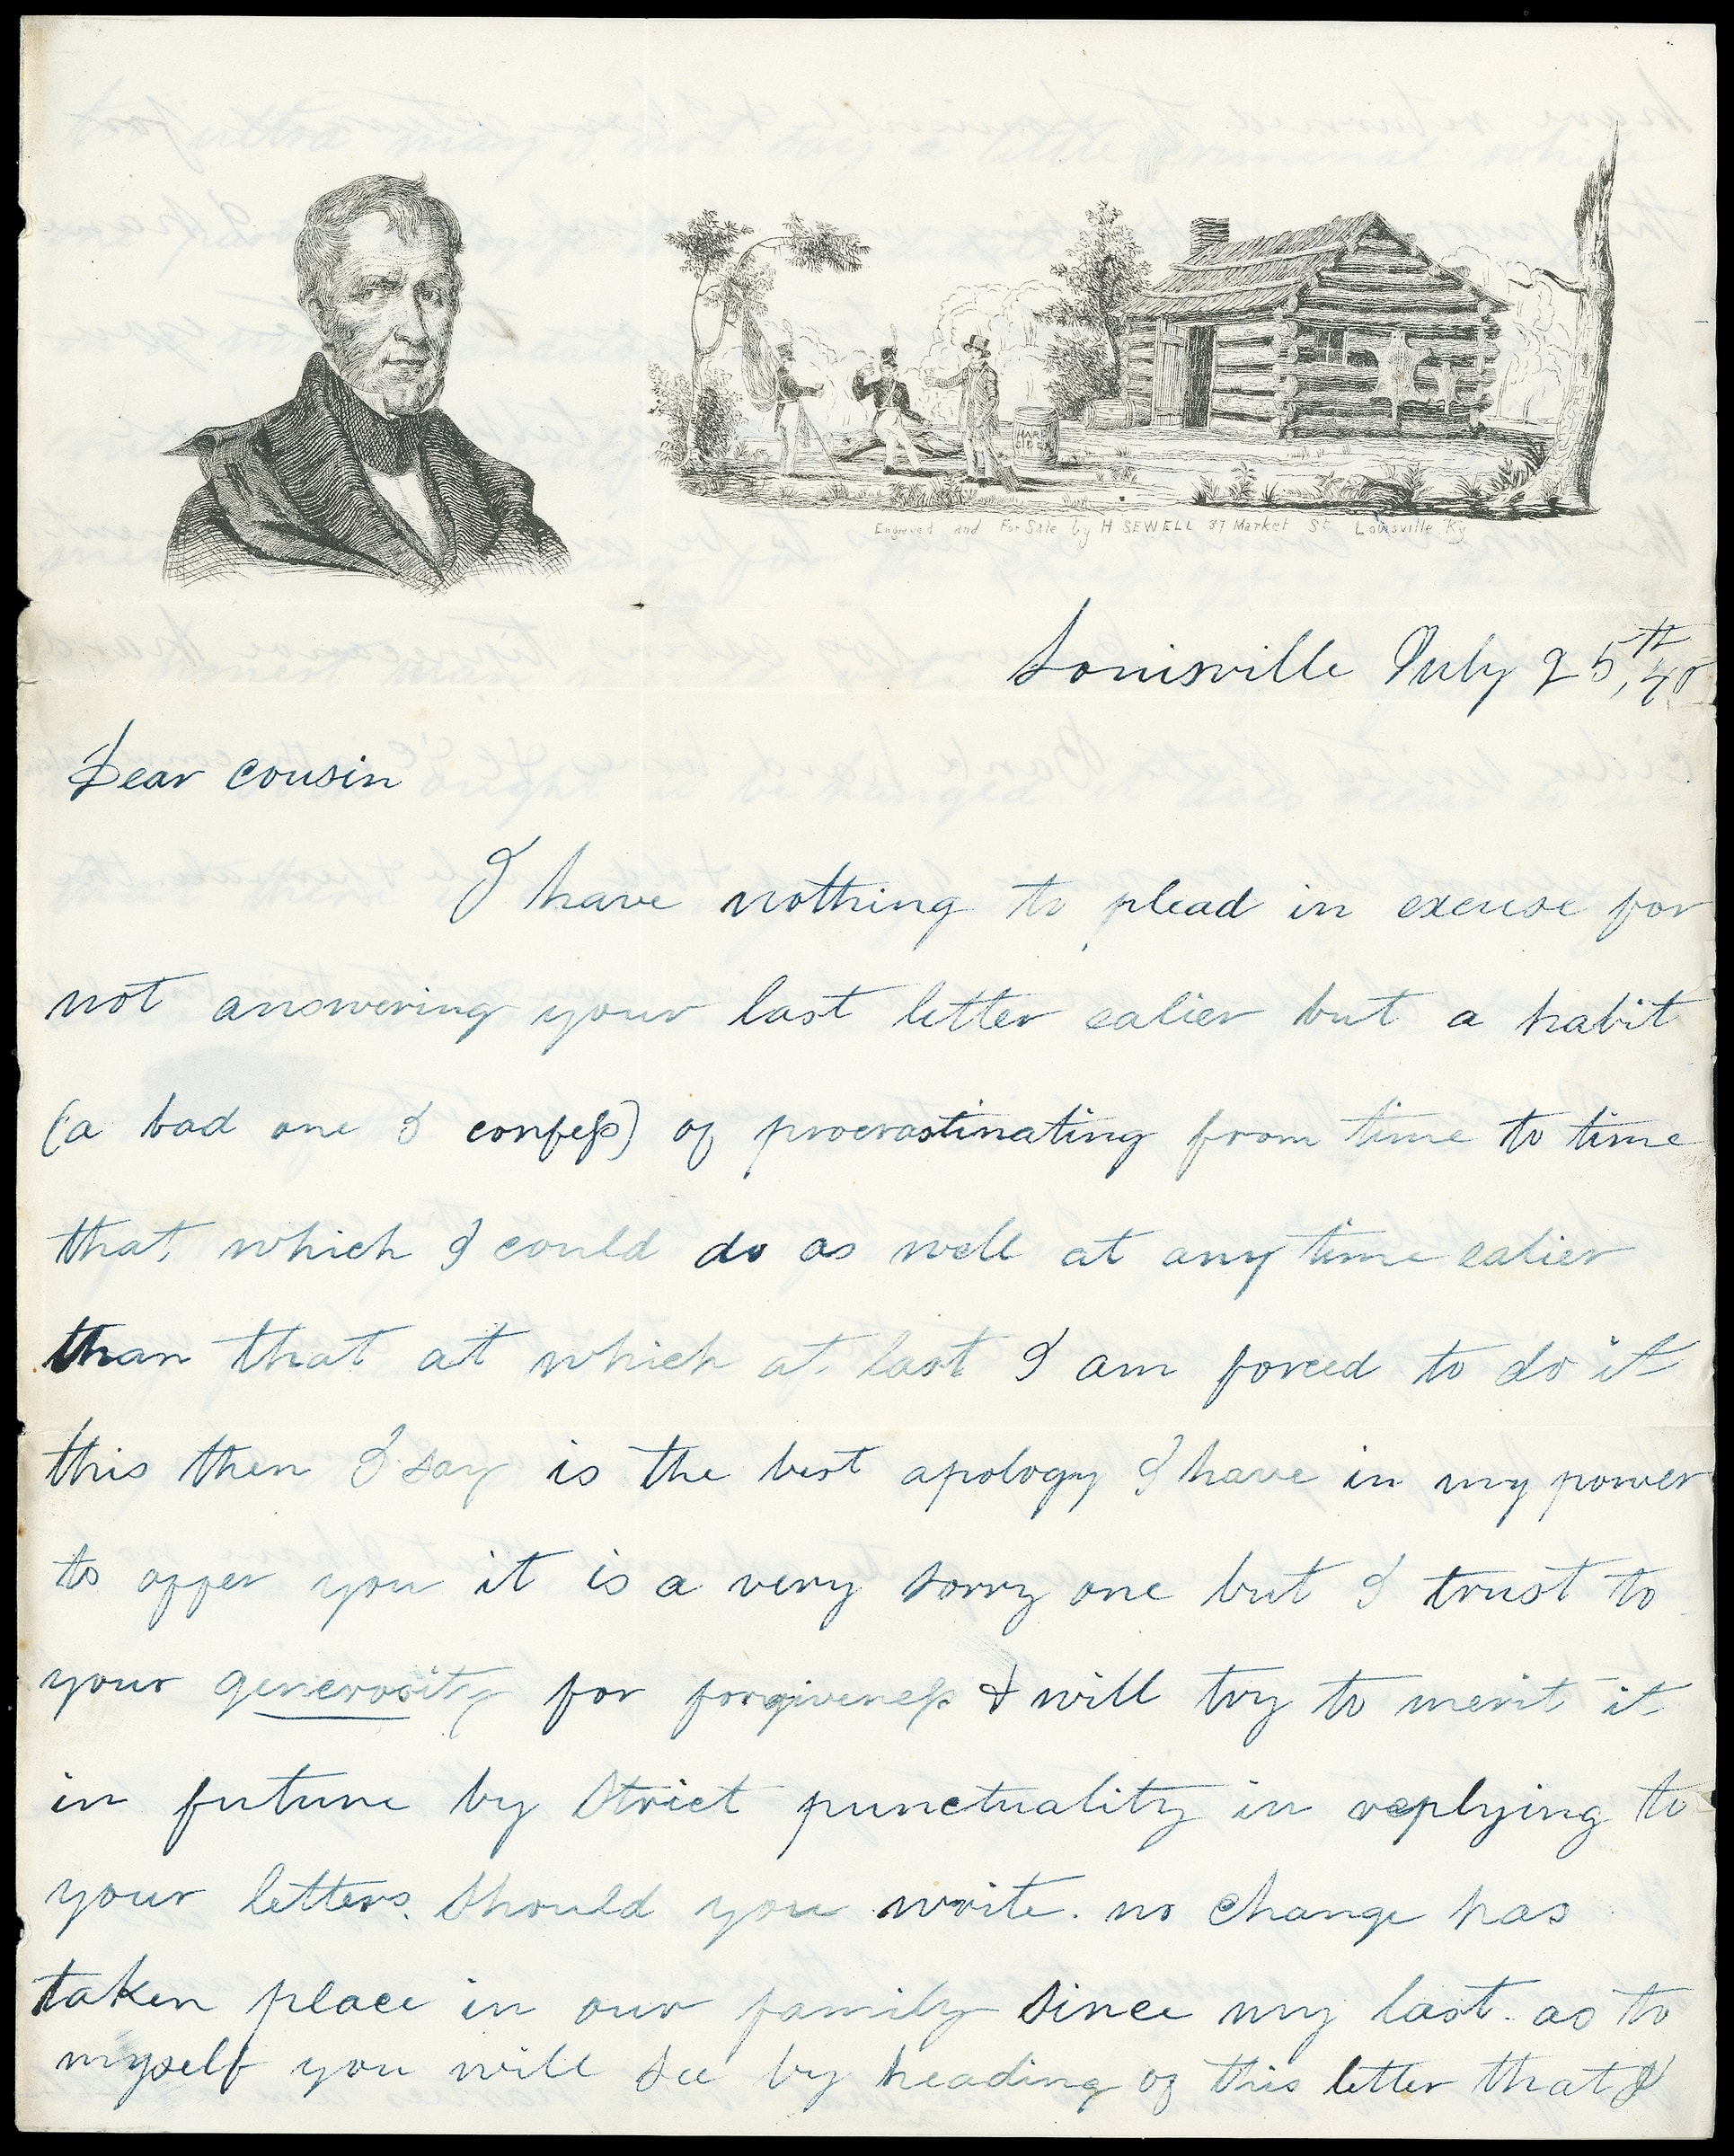 Engraved and For Sale by H SEWELL 37 Market St Louisville Ky
Louisville July 25th, 40
Dear cousin
I have nothing to plead in excuse for
not answering your last letter ealier but a habit
(a bad one I confess) of procrastinating from time to time
that, which I could do as well at any time ealier
than that at which at last I am forced to do it
this then I say is the best apology I have in my power
to offer you it is a very sorry one but I trust to
your generosity for forgiveness & will try to merit it
in future by Strict punctuality in replying to
your letters. Should you write. no change has
taken place in our family Since my last. as to
myself you will see by heading of this letter that I